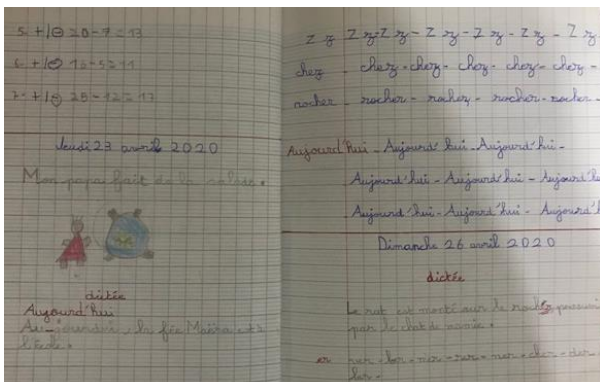 5. +/⊖ 20-7=13
6. +/⊖ 16-5=11
7. +/⊖ 25-12=13
Jeudi 23 avril 2020
Mon papa fait de la
dictée
Aujourd'hui
Au-jourdui, la fée est
l'école.
Z z Z z-Z z-Z z-Z z-Z z-Z z
chez - chez - chez - chez - chez - chez -
rocher - rocher - rocher - rocher - rocher -
Aujourd'hui - Aujourd'hui - Aujourd'hui -
Aujourd'hui - Aujourd'hui - Aujourd'hui
Aujourd'hui - Aujourd'hui - Aujourd'hui
Dimanche 26 avril 2020
dictée
Le rat est monté sur le rocher
par le chat de mamie.
er